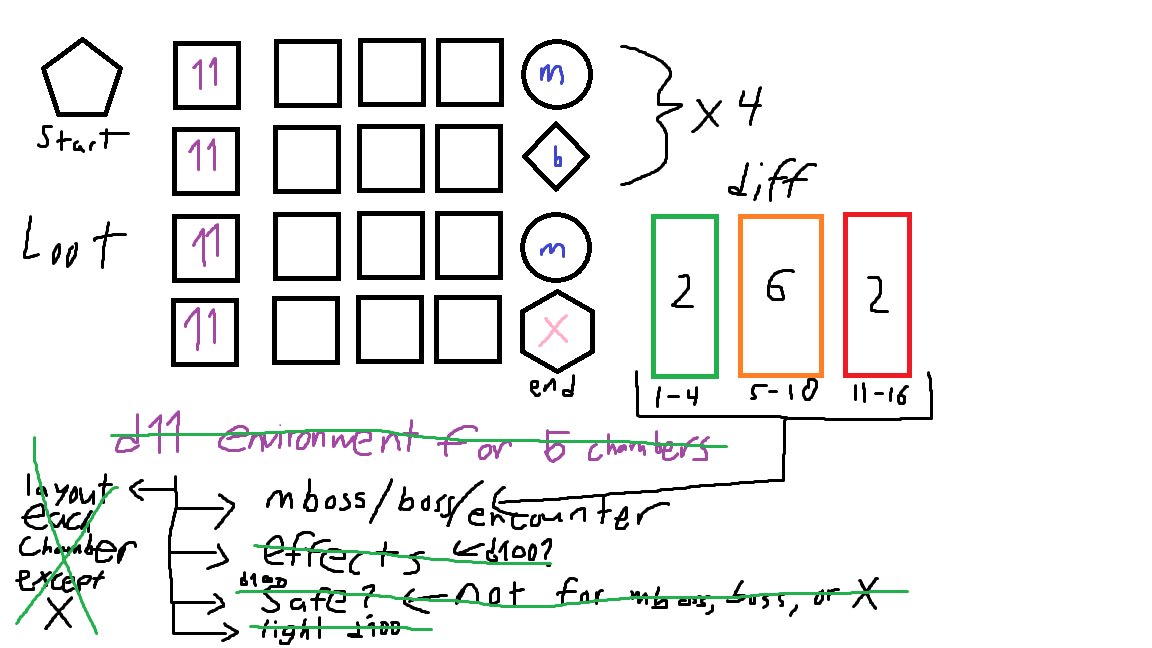 11 m
x 4
Start
11 b
diff
Loot
11 m
2 6 2
11 X
end
1-4 5-10 11-16
d11 environment for 5 chambers
layout
each
chamber
except
X
mboss/boss/encounter
effects d100?
d100
Safe? not for mboss, boss, or X
light d100